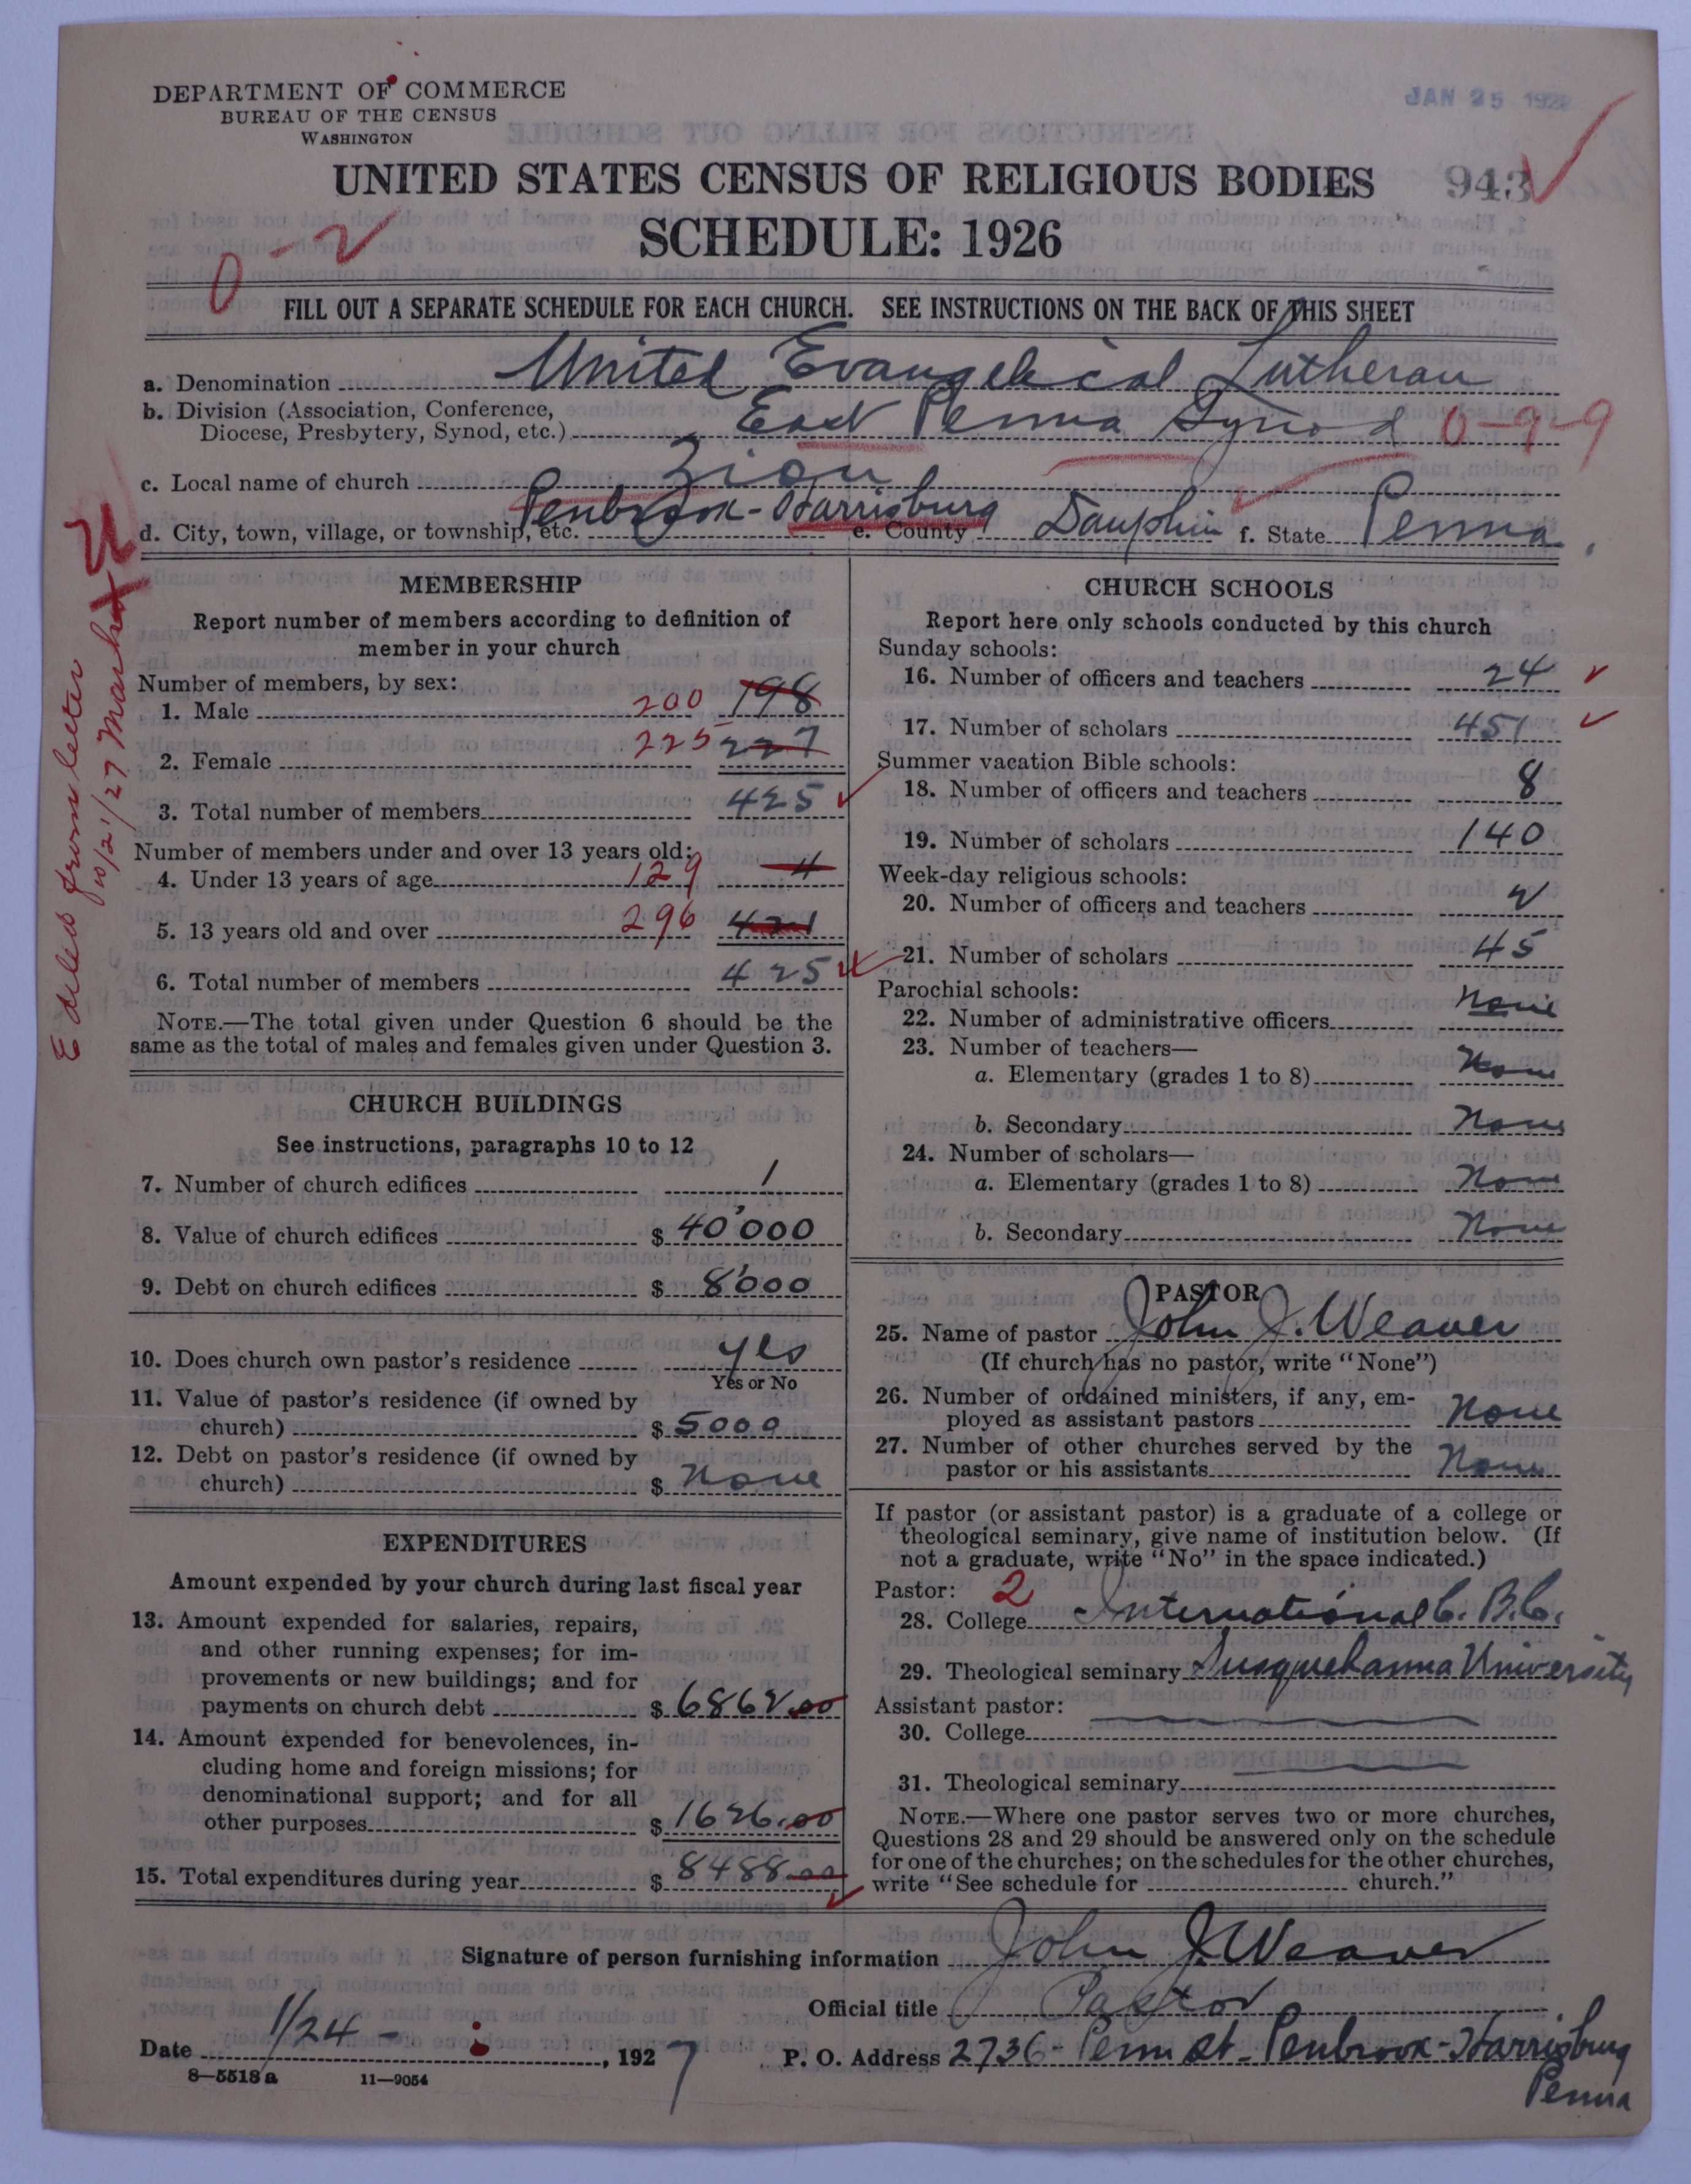 DEPARTMENT OF COMMERCE
BUREAU OF THE CENSUS
WASHINGTON
JAN 25 192
UNITED STATES CENSUS OF RELIGIOUS BODIES
943
SCHEDULE: 1926
0-2
FILL OUT A SEPARATE SCHEDULE FOR EACH CHURCH. SEE INSTRUCTIONS ON THE BACK OF THIS SHEET
a. Denomination United Evangelical Lutheran
b. Division (Association, Conference,
Diocese, Presbytery, Synod, etc.) East Penna Synod 0-9-9
c. Local name of church Zion
d. City, town, village, or township, etc. Penbrook-Harrisburg e. County Dauphin f. State Penna.
from letter
10/21/27
MEMBERSHIP
Report number of members according to definition of
member in your church
Number of members, by sex:
1. Male 200 198
2. Female 225 227
3. Total number of members 425
Number of members under and over 13 years old:
4. Under 13 years of age 129 4
5. 13 years old and over 296 421
6. Total number of members 425
NOTE.—The total given under Question 6 should be the
same as the total of males and females given under Question 3.
CHURCH BUILDINGS
See instructions, paragraphs 10 to 12
7. Number of church edifices 1
8. Value of church edifices $ 40'000
9. Debt on church edifices $ 8'000
10. Does church own pastor's residence yes
Yes or No
11. Value of pastor's residence (if owned by
church) $ 5000
12. Debt on pastor's residence (if owned by
church) $ none
EXPENDITURES
Amount expended by your church during last fiscal year
13. Amount expended for salaries, repairs,
and other running expenses; for im-
provements or new buildings; and for
payments on church debt $ 6862.00
14. Amount expended for benevolences, in-
cluding home and foreign missions; for
denominational support; and for all
other purposes $ 1626.00
15. Total expenditures during year $ 8488.00
CHURCH SCHOOLS
Report here only schools conducted by this church
Sunday schools:
16. Number of officers and teachers 24
17. Number of scholars 451
Summer vacation Bible schools:
18. Number of officers and teachers 8
19. Number of scholars 140
Week-day religious schools:
20. Number of officers and teachers 2
21. Number of scholars 45
Parochial schools:
22. Number of administrative officers None
23. Number of teachers—
a. Elementary (grades 1 to 8) None
b. Secondary None
24. Number of scholars—
a. Elementary (grades 1 to 8) None
b. Secondary None
PASTOR
25. Name of pastor John J. Weaver
(If church has no pastor, write "None")
26. Number of ordained ministers, if any, em-
ployed as assistant pastors None
27. Number of other churches served by the
pastor or his assistants None
If pastor (or assistant pastor) is a graduate of a college or
theological seminary, give name of institution below. (If
not a graduate, write "No" in the space indicated.)
Pastor: 2
28. College International C. B.C.
29. Theological seminary Susquehanna University
Assistant pastor:
30. College
31. Theological seminary
NOTE.—Where one pastor serves two or more churches,
Questions 28 and 29 should be answered only on the schedule
for one of the churches; on the schedules for the other churches,
write "See schedule for church."
Signature of person furnishing information John J. Weaver
Official title Pastor
Date 1/24 - , 1927 P. O. Address 2736- Penn St. Penbrook-Harrisburg
Penna
8-5518 a 11-9054